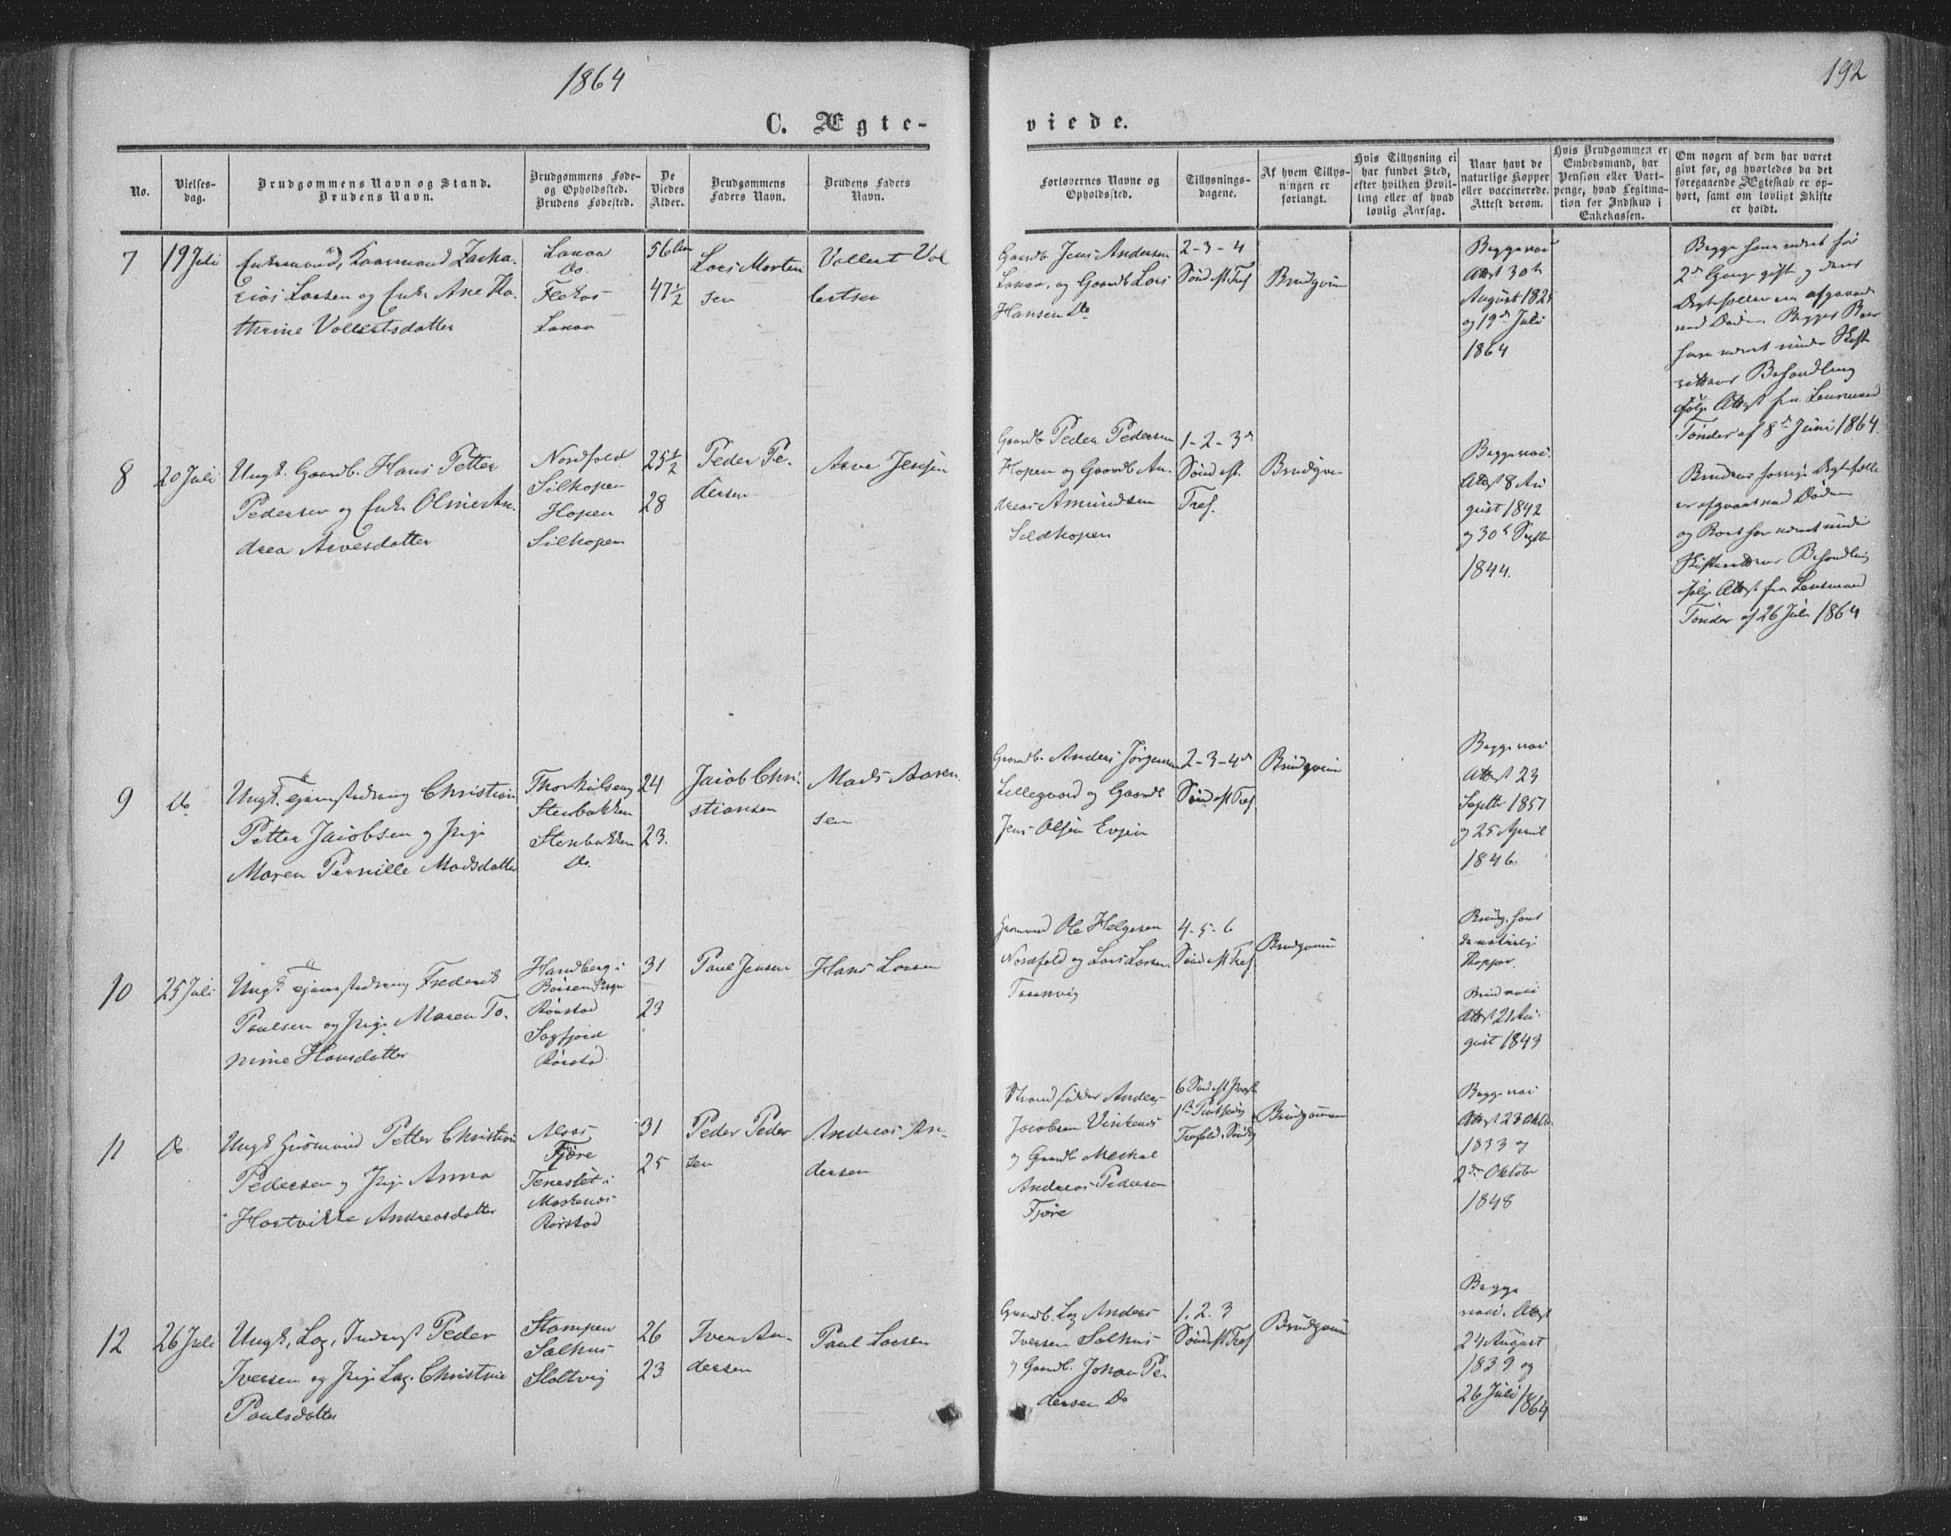 1864
192
C. Ægte-
viede.
No.
Vielses-
dag.
Brudgommens Navn og Stand.
Brudens Navn.
Brudgommens Føde-
og Opholdssted.
Brudens Fødested.
De
Viedes
Alder.
Brudgommens
Faders Navn.
Brudens Faders
Navn.
Forlovernes Navne og
Opholdssted.
Tillysnings-
dagene.
Af hvem Tillys-
ningen er
forlangt.
Hvis Tillysning ei
har fundet Sted,
efter hvilken Bevil-
ling eller af hvad
lovlig Aarsag.
Naar havt de
naturlige Kopper
eller vaccinerede.
Attest derom.
Hvis Brudgommen er
Embedsmand, har
Pension eller Vart-
penge, hvad Legitima-
tion for Indskud i
Enkekassen.
Om nogen af dem har været
givt før, og hvorledes da det
foregaaende Ægteskab er op-
hørt, samt om lovligt Skifte
er holdt.
7
19 Juli
Enkemand, Kaarmand Zacha-
rias Larsen og Enke Ane Ka-
thrine Vollertsdatter
Do.
56
47½
Lars Morten
sen
Vollert Vol
lertsen
Gaardb Jens Andersen
og Gaardb Lars
Hansen Do
2-3-4
Sønd eft Tref
Brudgom
Begge vac
Attst 30te
August 182
og 19de Juli
1864
Begge have været før
2den Gang gift og deres
Ægtefæller ere afgaaede
ved Døden. Begges Boer
have været under Skifte
rettens Behandling
ifølge Attest fra Lensmand
Tønder af 8de Juni 1864.
8
20 Juli
Ungk. Gaardb. Hans Petter
Pedersen og Enke Oline An
drea Arvesdatter
Nordfold
Silhopen
Hopen
Silhopen
25½
28
Peder Pe-
dersen
Arve Jensen
Gaardb Peder Pedersen
Hopen og Gaardb An
dreas Amundsen
Sildhopen
1-2-3de
Sønd eft.
Tref.
Brudgom
Begge vac.
Attst 8 Au
gust 1842
og 30te Septbr
1844.
Brudens forrige Ægtefælle
er afgaaet ved Døden
og Boet har været under
Skifterettens Behandling
ifølge Attest fra Lensmand
Tønder af 26 Juli 1864
9
Do
Ungk. Christian
Petter Jacobsen og Pige
Maren Pernille Madsdatter
Stenbakken
Stenbakken
Do.
24
23.
Jacob Chri-
stiansen
Mads Aaren
sen
Gaardb. Anders Jørgensen
Lillegaard og Gaardb
Jens Olsen Evjen
2-3-4de
Sønd eft Tref
Brudgom
Begge vac
Attst 23
Septbr 1851
og 25 April
1846.
10
25 Juli
Ungk. Frederik
Paulsen og Pige Maren To-
nine Hansdatter
Handberg i
Rørstad
Sagfjord
Rørstad
31
23
Paul Jensen
Hans Larsen
Ole Helgesen
Nordfold og Lars Larsen
Taarnvig
4-5-6
Sønd eft Tref
Brudgom
Brudg. havt
de naturlige
Kopper.
Brud vac
Attst 21 Au-
gust 1843
11
Do.
Ungk Husmand Petter Christian
Pedersen og Pige Anna
Hartvikke Andreasdatter
Fjøre
Tennes i
Moskenes
Rørstad
31
25
Peder Peder
sen
Andreas An-
dersen
Strandsidder Anders
Jacobsen
og Gaardb Meskal
Andreas Pedersen
Fjøre
6 Sønd eft Paaske
1ste Pintsedag
Trefold. Søndg
Brudgommen
Begge vac
Attst 23 Oktbr
1833 og
2den Oktobr
1848
12
26 Juli
Ungk, Lag, Inderst Peder
Iversen og Pige Lag. Christine
Paulsdatter
Stampen
Salhus
Sloltvig
26
23
Iver An-
dersen
Paul Larsen
Gaardb. Lag Anders
Iversen Salhus
og Gaardb. Johan Pe
dersen Do
1. 2. 3
Sønd eft Tref
Brudgom
Begge
vac. Attst
24 August
1839 og
26 Juli 1864